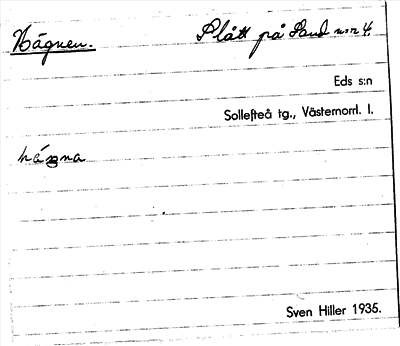 Hägnen. Slått på Sand n:r 4.
Eds s:n
Sollefteå tg., Västernorrl. l.
hä́gna
Sven Hiller 1935.